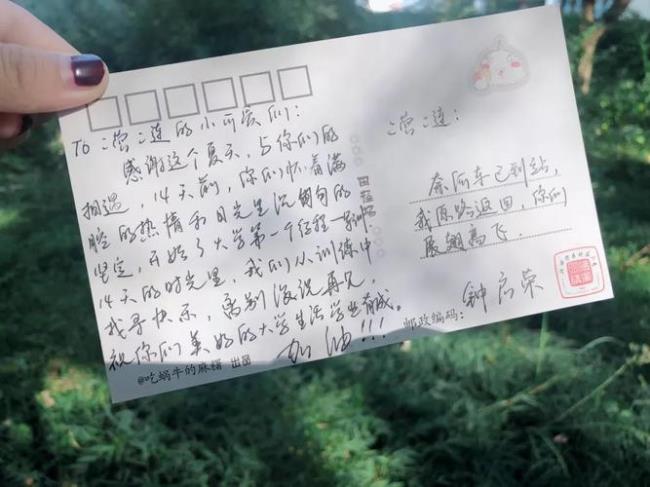 To 二营二连的小可爱们：
感谢这个夏天，与你们的
相遇，14天前，你们怀着满
腔的热情和目光里沉甸甸的
坚定，开始了大学第一个征程—军训
14天的时光里，我们从训练中
找寻快乐，离别没说再见，
祝你们美好的大学生活学业有成。
加油!!!
@吃蜗牛的麻辣 出品
二营二连：
奈何车已到站，
我原路返回，你们
展翅高飞.
钟启荣
邮政编码：